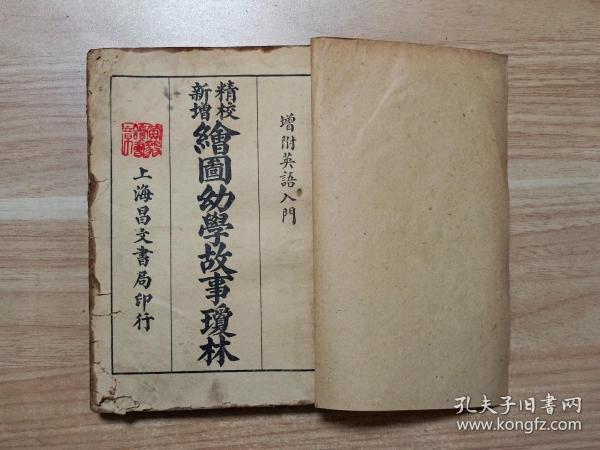 增附英語入門
精校
新增
繪圖幼學故事瓊林
上海昌文書局印行
孔夫子旧書网
www.kongfz.com